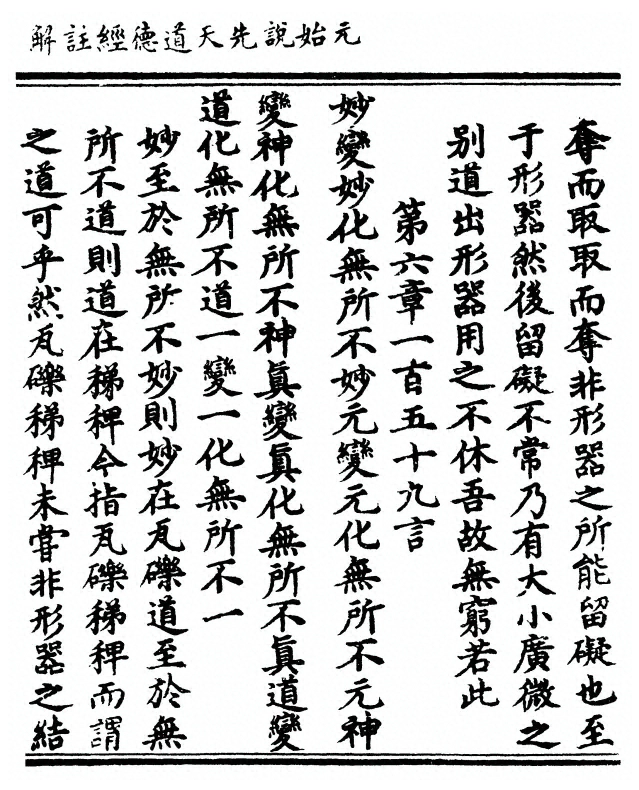 元始說先天道德經註解
奪而取取而奪非形器之所能留礙也至
于形器然後留礙不常乃有大小廣微之
別道出形器用之不休吾故無窮若此
第六章一百五十九言
妙變妙化無所不妙元變元化無所不元神
變神化無所不神眞變眞化無所不眞道變
道化無所不道一變一化無所不一
妙至於無所不妙則妙在瓦礫道至於無
所不道則道在稊稗今指瓦礫稊稗而謂
之道可乎然瓦礫稊稗未嘗非形器之結